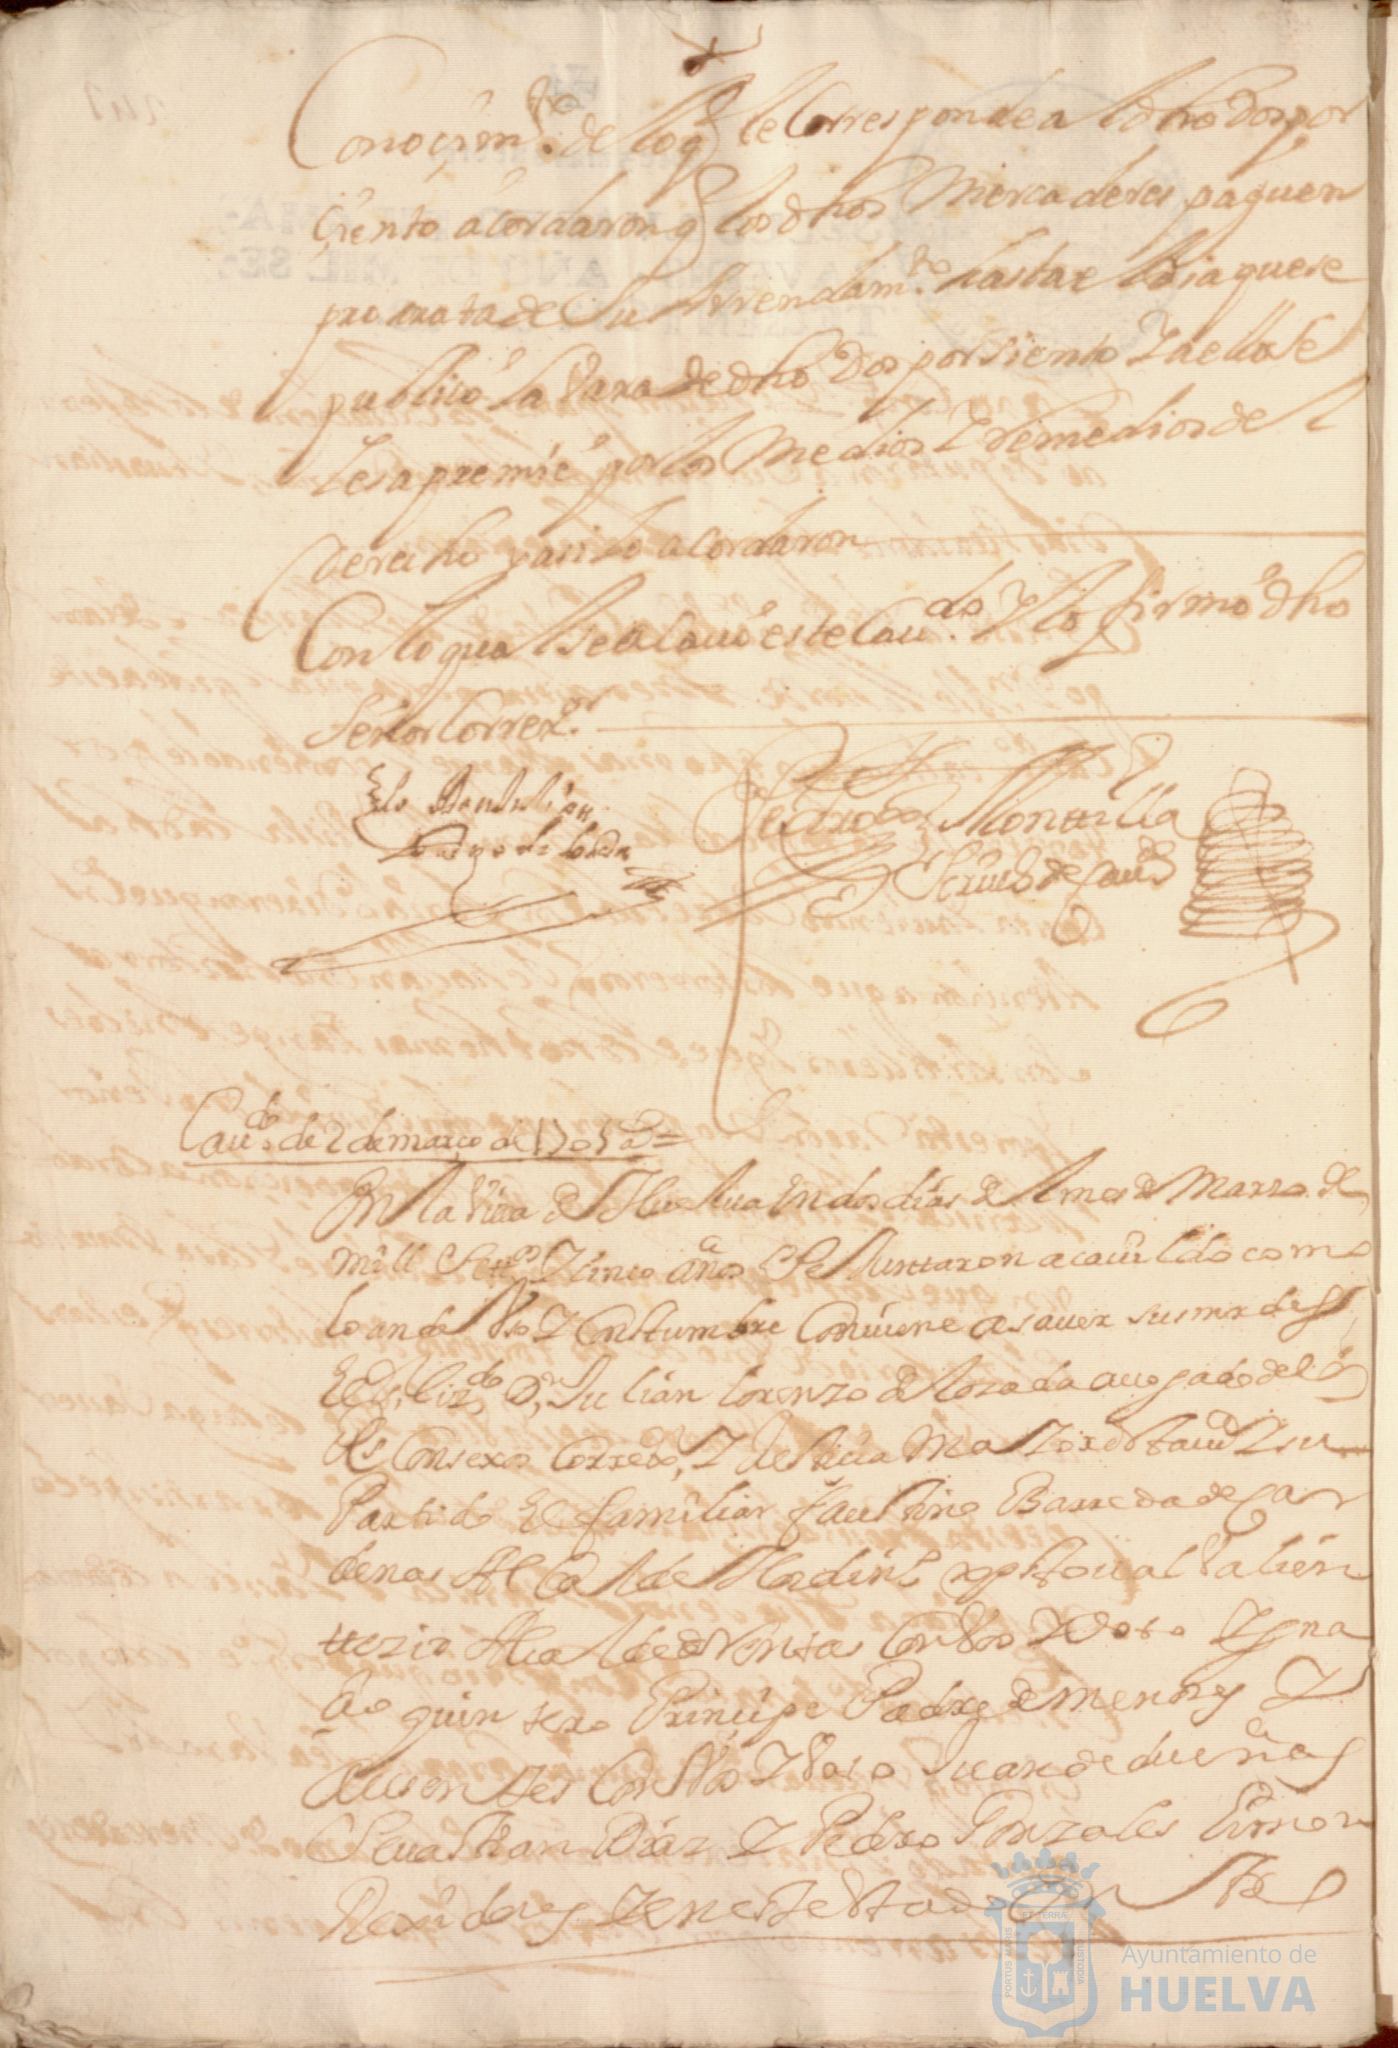 Conoçimto. de lo q le Corresponde al dho Dos por
çiento acordaron q los dhos Mercaderes paguen
pro rata de Su Arrendamto. hasta el dia que se
publicó la Vara de dho Dos por siento Y a ello se
les apremie por los Medios Y remedios de el
derecho y assi lo acordaron
Con lo qual se acauó este Cauдo. Y lo firmó dho
Señor Correxor.
Ldo Don Julian
Lorenzo de Losada
Pedro de Montilla
Scriuo de Cauдo
Cauдo. de 2 de março de 1705 as =
En la Villa de Huelua En dos dias de el mes de Marzo de
mill Settos Y cinco años Se Junttaron a cauildo como
lo an de Vso Y Costumbre Conuiene a sauer sus mrdes
El Sr. Lizdo. Dn. Julian Lorenzo de Losada auogado de los
Rs Consexos Correxor, Y Justicia Maior de esta Villa Y su
Partido El familiar Faustino Barreda de Car
denas Alcalde Hordino xptoual Valien
tte Alcalde de Ventas Con Voz Y Voto Ygna
çio quintero Prinçipe Padre de Menores Y
Ausentes Con Voz Y Voto Juan de dueñas
Seuastian Diaz Y Pedro Gonzales Limon
Rexidores Y en este estado
PORTUS MARIS ET TERRAE CUSTODIA
Ayuntamiento de
HUELVA